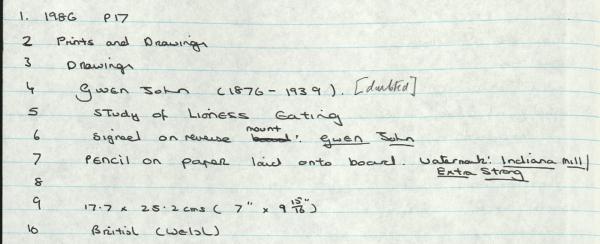 1. 1986 P17
2 Prints and Drawings
3 Drawings
4 Gwen John (1876 - 1939). [doubted]
5 Study of Lioness Eating
6 Signed on reverse board mount: Gwen John
7 Pencil on paper laid onto board. Watermark: Indiana Mill /
Extra Strong
8
9 17.7 x 25.2 cms (7" x 9 15/16")
10 British (Welsh)